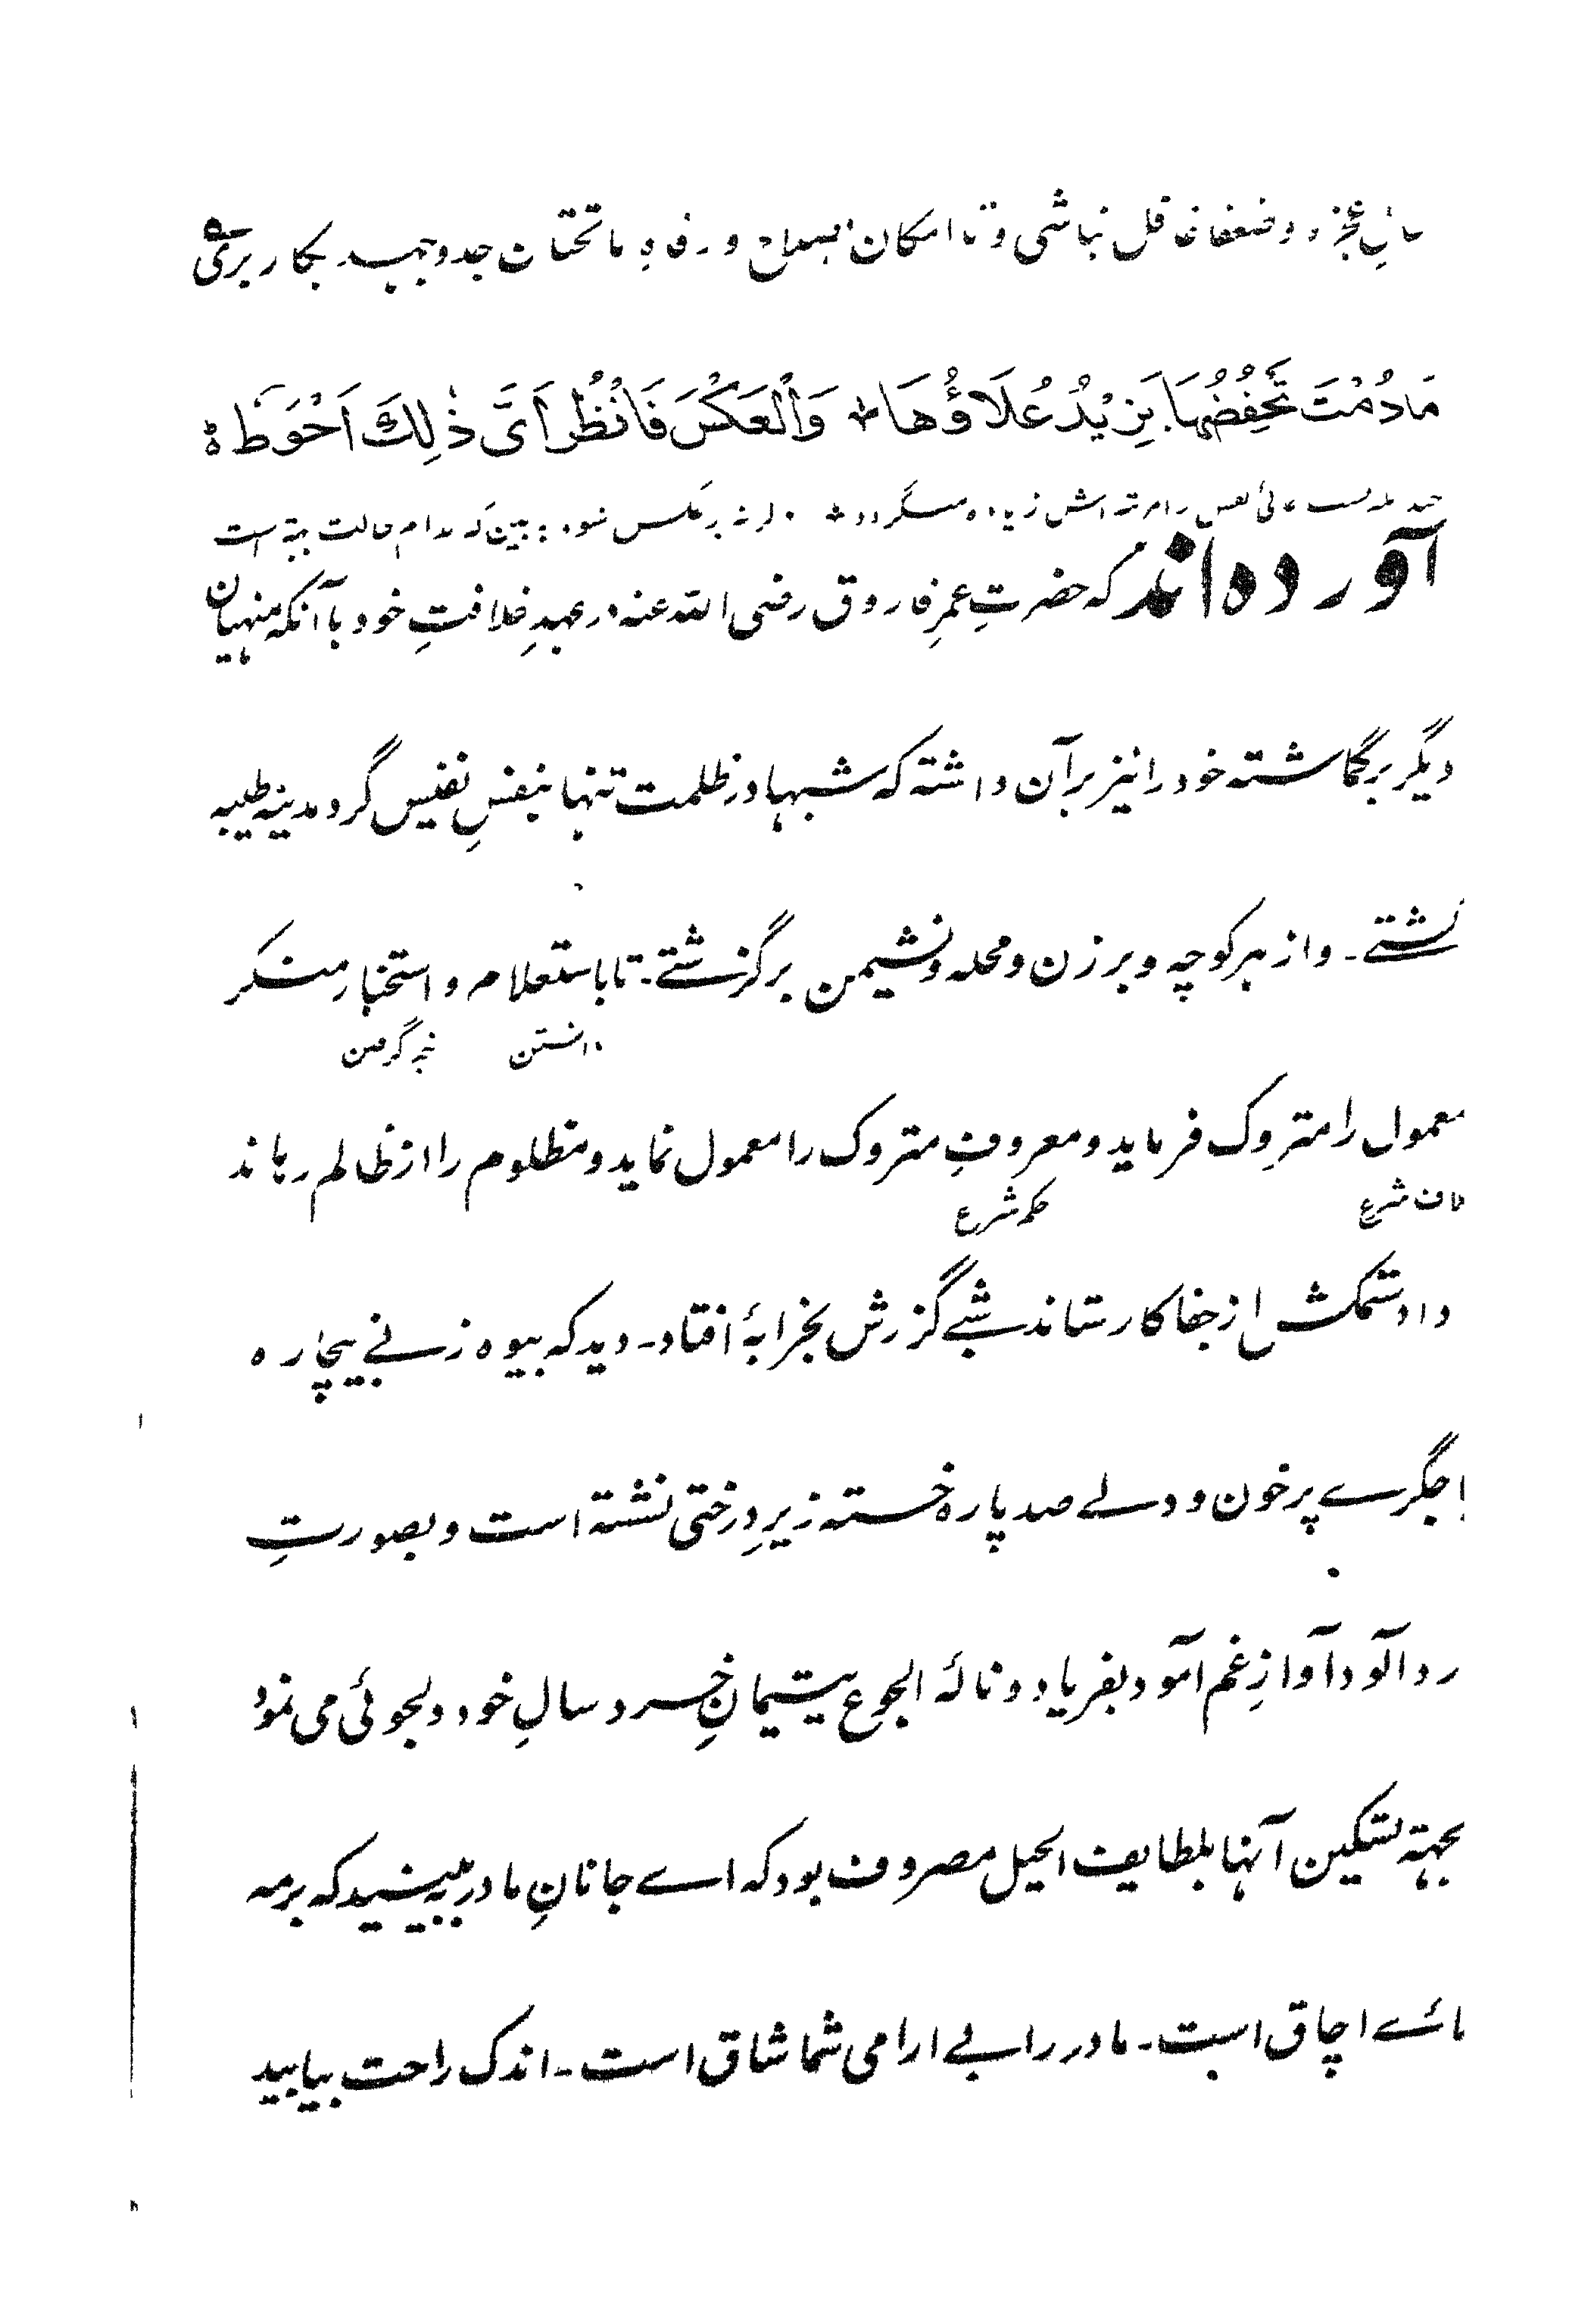 عجزه و ضعفا غافل نباشی و تا امکان اصلاح و رفاهِ ماتحتان جد و جهد بکار بری
مَادُمْتَ تَخْفِضُهَا يَزِيْدُ عُلَاؤُهَا ۞ وَالْعَكْسَ فَانْظُرْ اَىَّ ذٰلِكَ اَحْوَطَ
زیاده میگردد برعکس شود ببین که کدام حالت بهتر است
آورده اند که حضرتِ عمرِ فاروق رضی الله عنه در عهدِ خلافتِ خود با آنکه منهیان
دیگر برگماشته خود را نیز بر آن داشته که شبها در ظلمت تنها بنفسِ نفیس گرد مدینه طیبه
گشتے۔ و از هر کوچه و برزن و محله و نشیمن برگزشتے۔ تا باستعلام و استخبار منکر
دانستن خبر گرفتن
معمول را متروک فرماید و معروفِ متروک را معمول نماید و مظلوم را از ظالم رهاند
خلاف شرع حکم شرع
داد ستمکش از جفا کار ستاند شبے گزرش بخرابهٔ افتاد۔ دید که بیوه زنے بیچاره
با جگرے پرخون و دلے صد پاره خسته زیرِ درختی نشسته است و بصورتِ
درد آلود و آوازِ غم آمود بفریاد و نالهٔ الجوع یتیمانِ خرد سالِ خود دلجوئی می نمود
بجهة تسکین آنها بلطایف الحیل مصروف بود که اے جانانِ مادر ببینید که برمه
مائے اچاق است۔ مادر را بے ارامی شما شاق است۔ اندک راحت بیابید